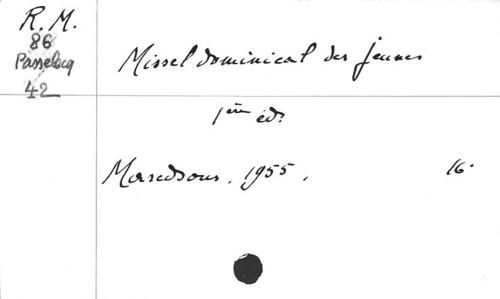 R. M.
86
Passelecq
42
Missel dominical des jeunes
1ère éd.
Maredsous. 1955. 16°